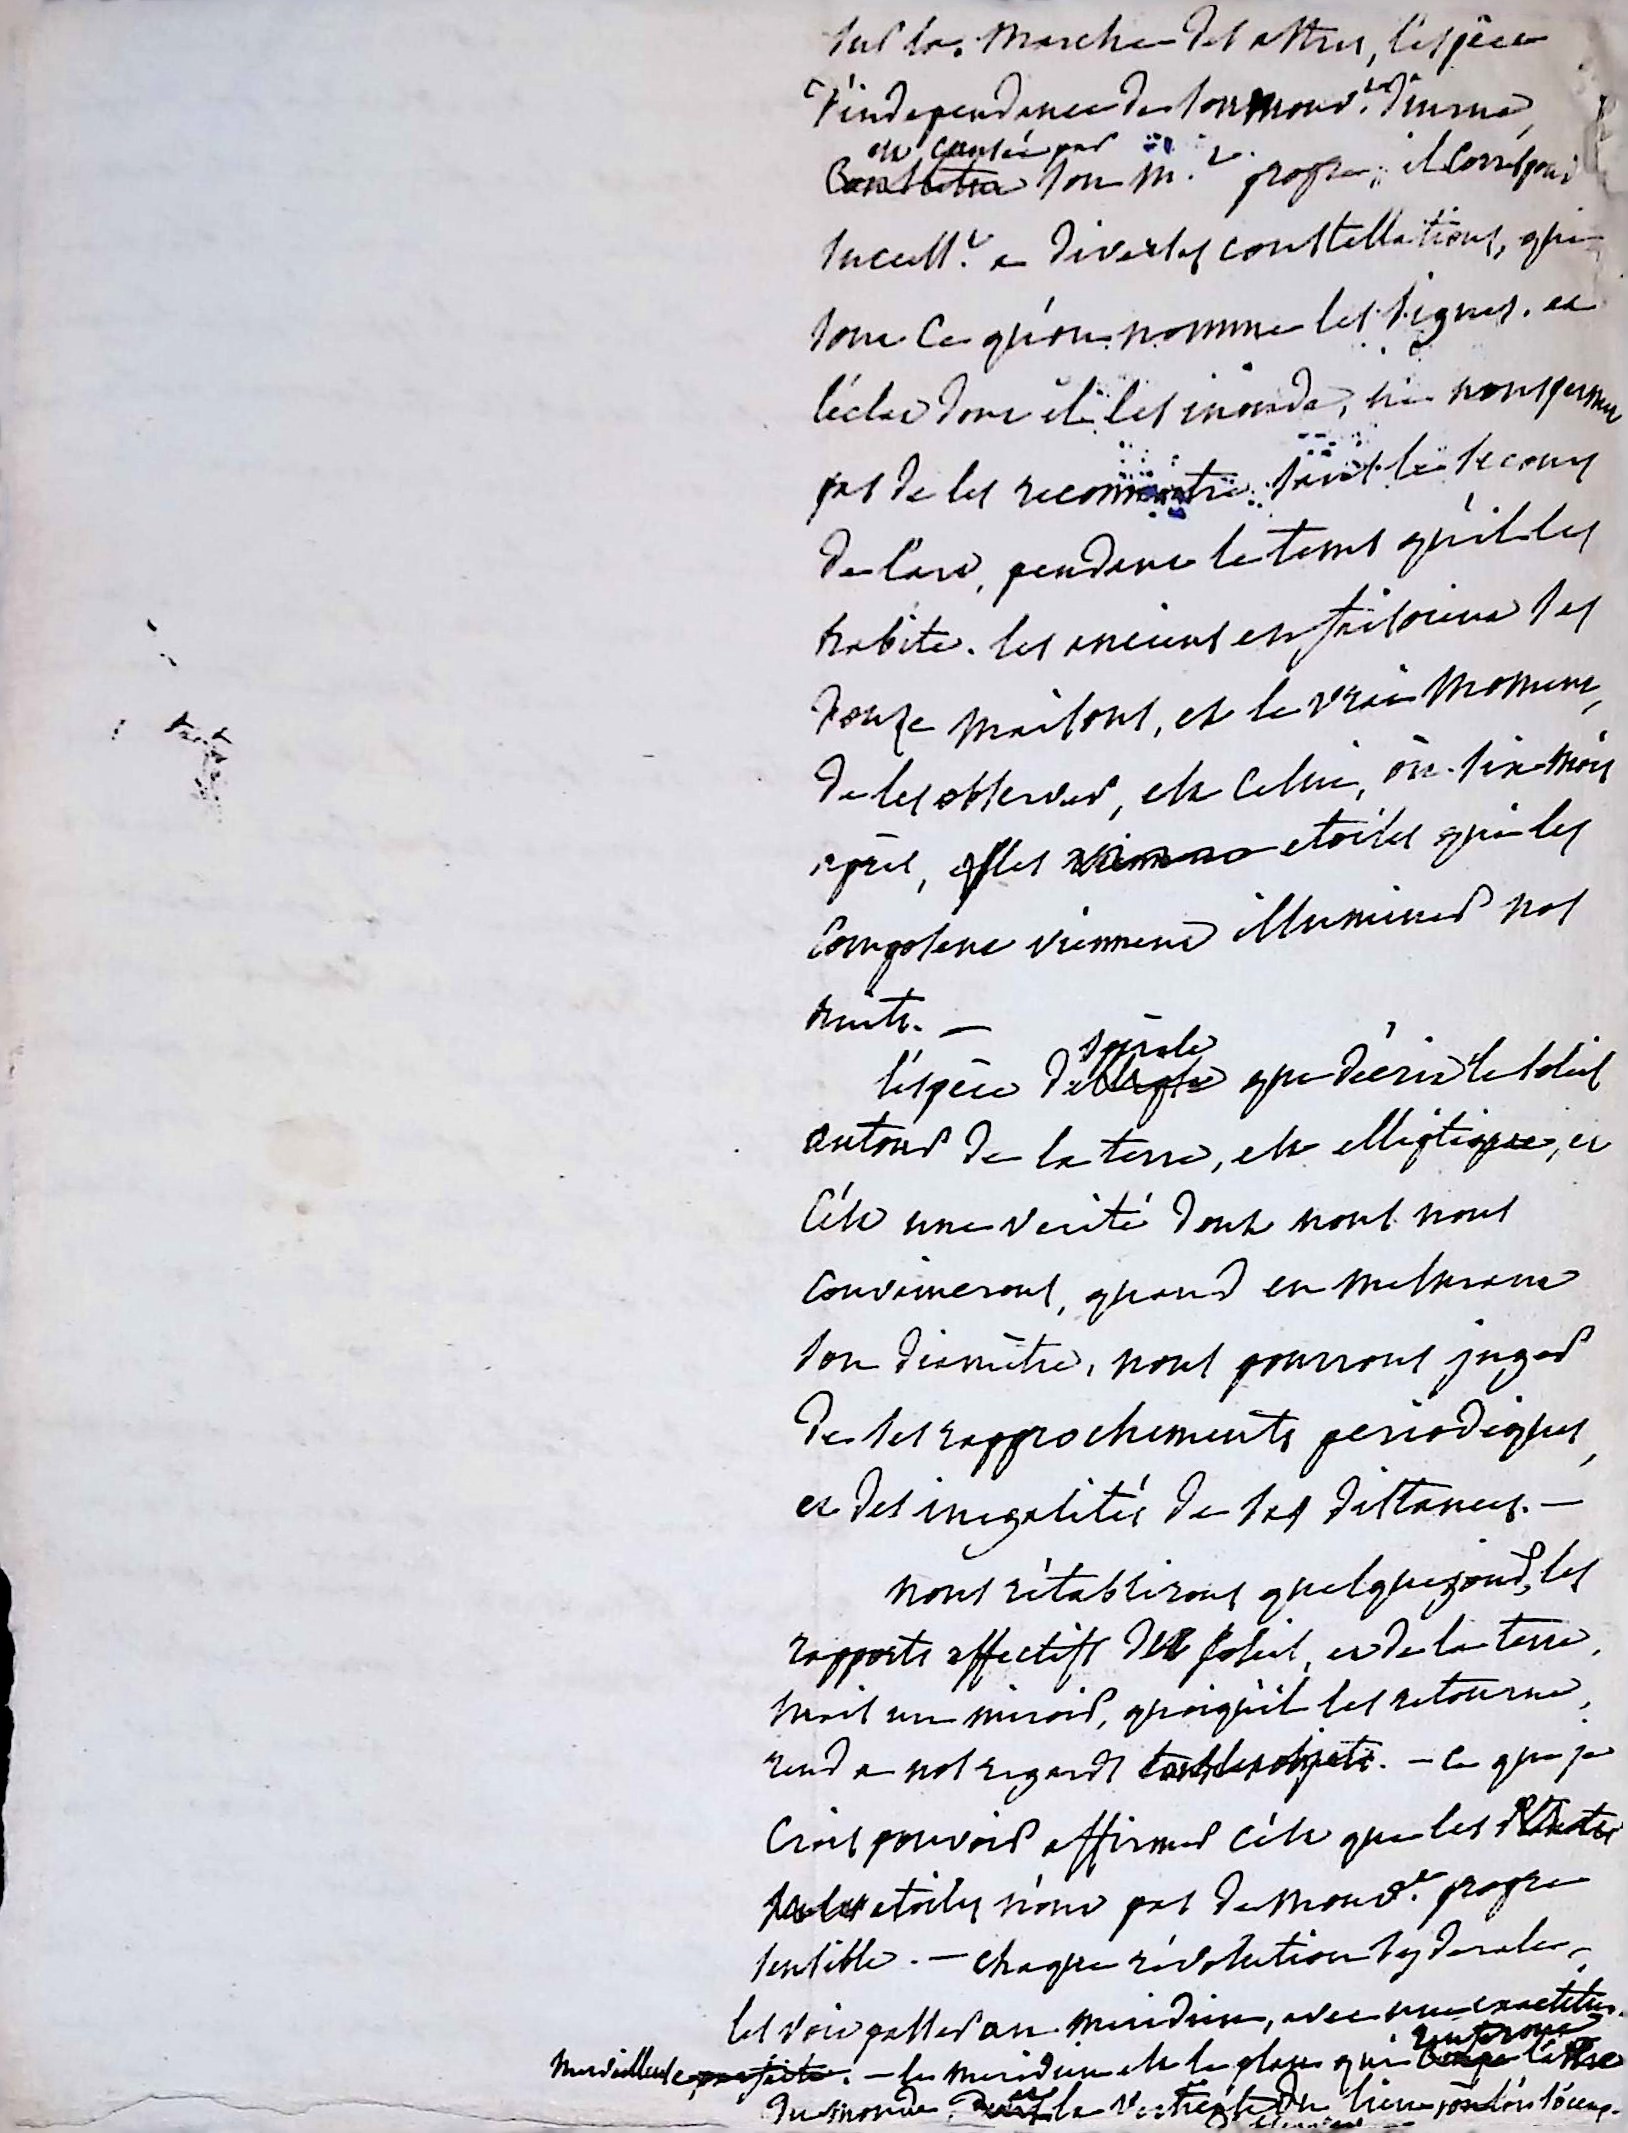 sur la marche des astres, l'espèce
d'independance de son mouv.t diurne,
est causée par
Constitue son m.t propre; il correspond
success.t a diverses constellations, qui
sont ce qu'on nomme les signes. et
l'éclat dont il les inonde, ne nous permet
pas de les reconnoitre sans le secours
de l'art, pendant le tems qu'il les
habite. les anciens en faisoient ses
douze maisons, et le vrai moment,
de les observer, est celui, où six mois
après, les etoiles qui les
composent viennent illuminer nos
nuits. —
spirale
l'espèce d'ellipse que décrit le soleil
autour de la terre, est elliptique, et
c'est une verité dont nous nous
convaincrons, quand en mesurant
son diamètre, nous pourrons juger
de ses rapprochements periodiques,
et des inegalités de ses distances. —
nous rétablirons quelque jour, les
rapports effectifs du soleil, et de la terre,
mais un miroir, quoiqu'il les retourne,
rend a nos regards tous les objets. — ce que je
crois pouvoir affirmer c'est que les
etoiles n'ont pas de mouv.t propre
sensible. — chaque révolution syderale,
les voit passer au meridien, avec une exactitude
merveilleuse parfaite. — le meridien est le plan qui coupe l'axe
du monde, et la verticale du lieu